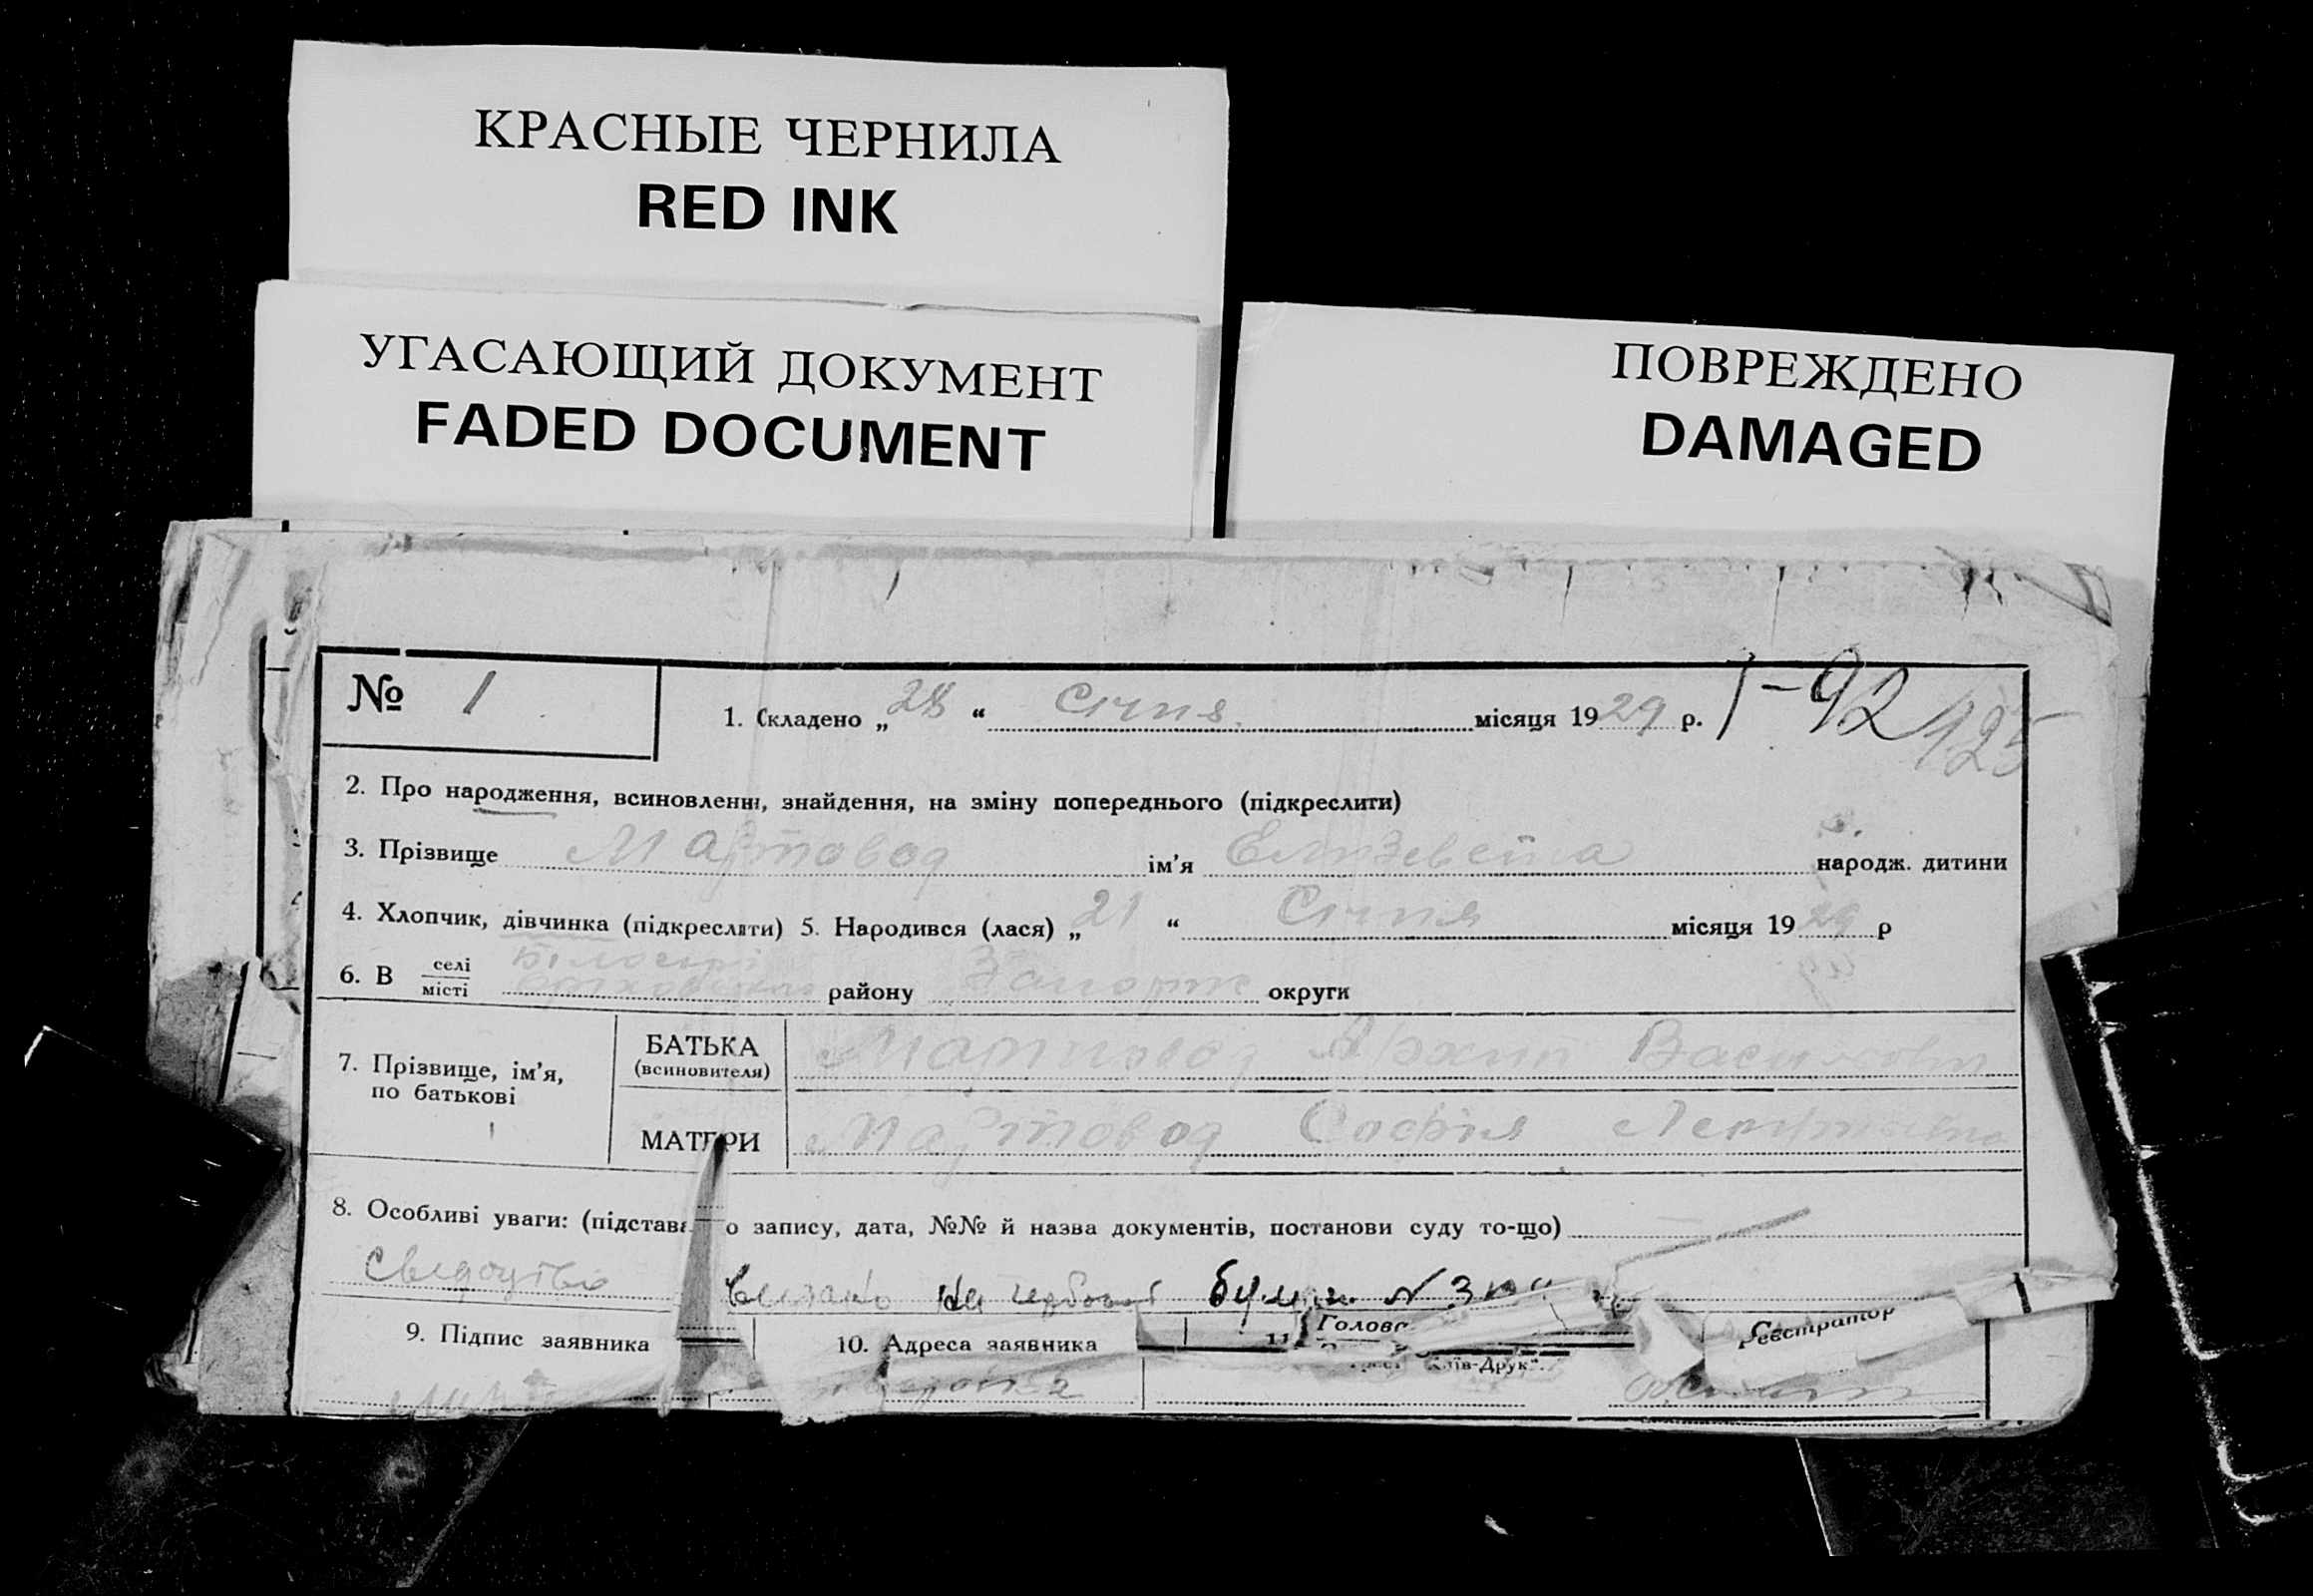 КРАСНЫЕ ЧЕРНИЛА
RED INK
УГАСАЮЩИЙ ДОКУМЕНТ
FADED DOCUMENT
ПОВРЕЖДЕНО
DAMAGED
№ 1
1. Складено „28“ Січня місяця 1929 р. 1-92 125
2. Про народження, всиновленні, знайдення, на зміну попереднього (підкреслити)
3. Прізвище Мартовод ім'я Елизевета народж. дитини
4. Хлопчик, дівчинка (підкреслити) 5. Народився (лася) „21“ Січня місяця 1929 р
6. В селі місті району Запоріж округи
7. Прізвище, ім'я, по батькові
БАТЬКА (всиновителя) Мартовод Архип Васильович
МАТЕРИ Мартовод Софія
8. Особливі уваги: (підстава о запису, дата, №№ й назва документів, постанови суду то-що)
на гербовой бумаги N 3
9. Підпис заявника 10. Адреса заявника 11 Голова Реєстратор
Київ-Друк".